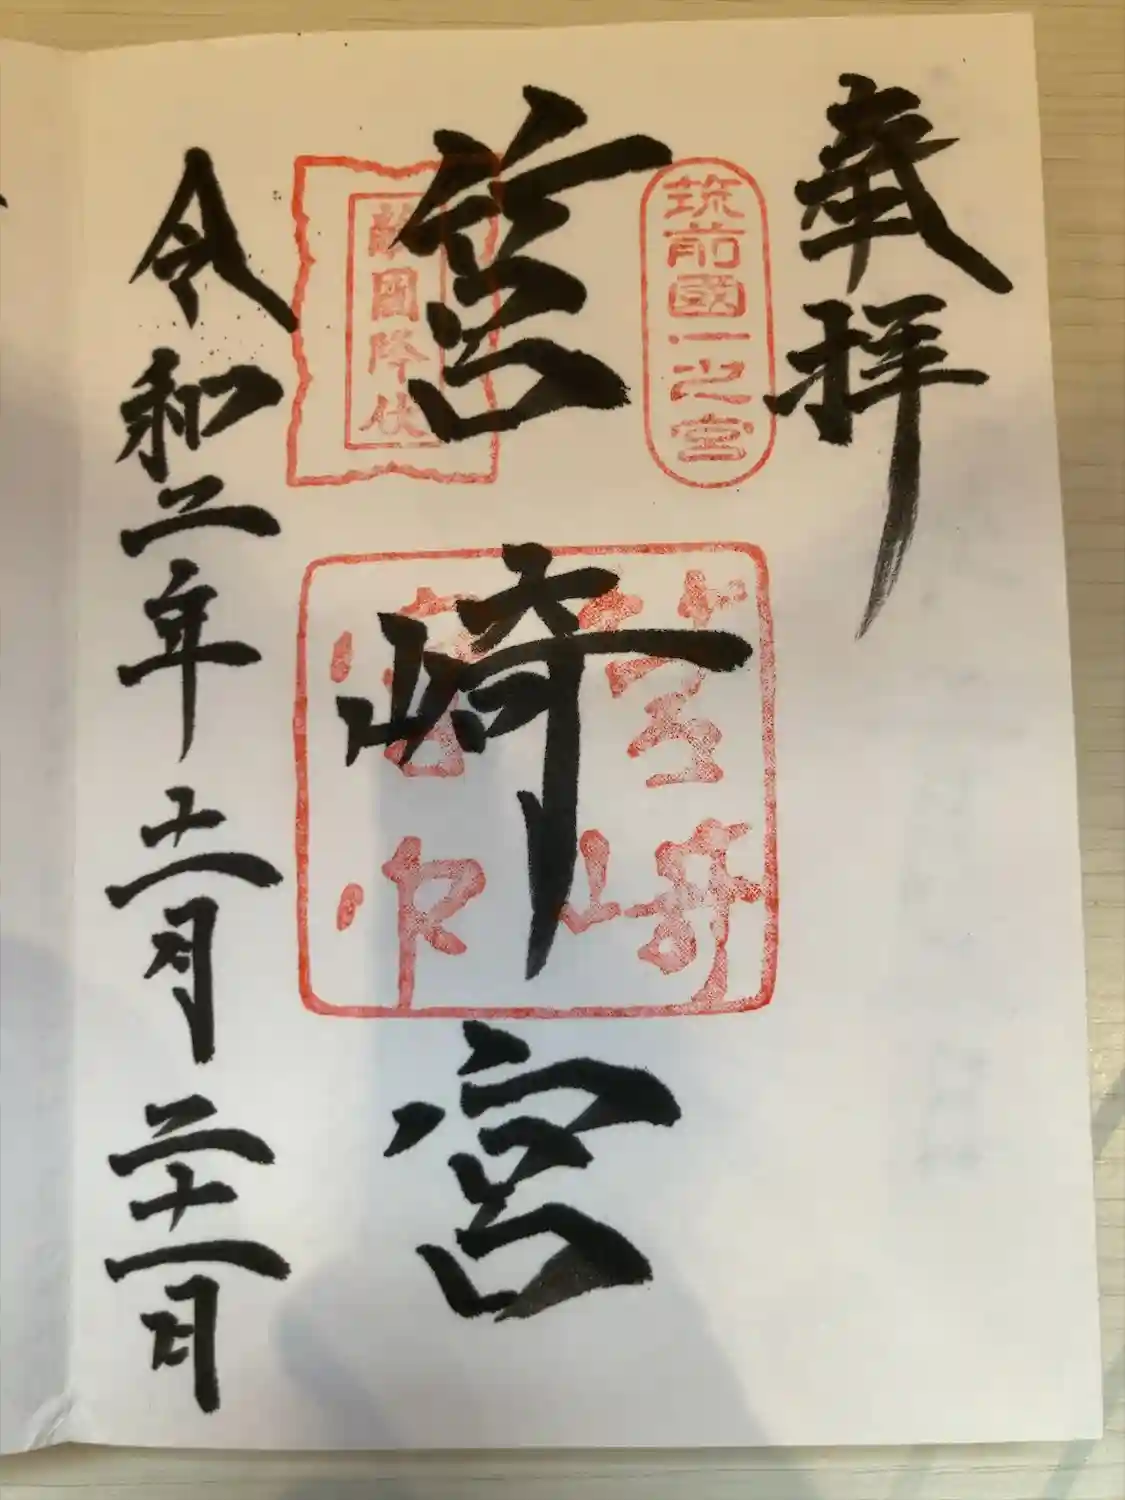 奉拝
筑前國一之宮
筥崎宮
敵國降伏
筥崎宮印
令和二年十二月二十一日